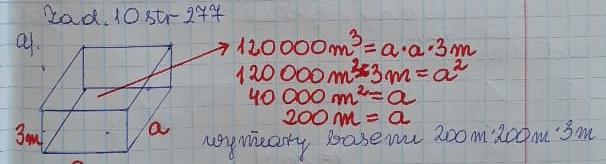 Zad. 10 str 277
a).
120 000 m³ = a · a · 3m
120 000 m³ : 3m = a²
40 000 m² = a
200 m = a
3m
a
wymiary basenu 200m · 200m · 3m